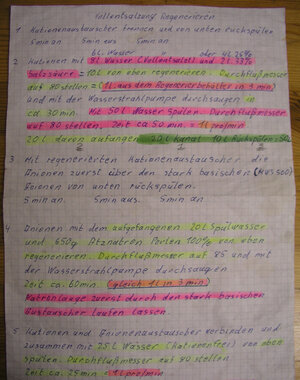 Vollentsalzung Regenerieren
1 Kationenaustauscher trennen und von unten rückspülen
5min an   5min aus   5min an
6L Wasser oder 4L
2 Kationen mit 8L Wasser (Vollentsalzt) und 2L 33%
Salzsäure = 10L von oben regenerieren. Durchflußmesser
auf 80 stellen = (1L aus dem Regenerierbehälter in 3 min)
und mit der Wasserstrahlpumpe durchsaugen in
ca 30min. Mit 50L Wasser spülen. Durchflußmesser
auf 80 stellen, Zeit ca 50min = 1L pro/min
20L davon auffangen 20L Kanal 10L Rückspülen = 50L
3 Mit regenerierten Kationenaustauscher die
Anionen zuerst über den stark basischen (MUS500)
Anionen von unten rückspülen.
5min an. 5min aus. 5min an
4 Anionen mit dem aufgefangenen 20L Spülwasser
und 650g Atznatron Perlen 100% von oben
regenerieren. Durchflußmesser auf 85 und mit
der Wasserstrahlpumpe durchsaugen
Zeit ca. 60min. (gleich 1L in 3min)
Natronlauge zuerst durch den stark basischen
Austauscher laufen lassen.
5 Kationen und Anionenaustauscher verbinden und
zusammen mit 25L Wasser (Kationenfrei) von oben
spülen. Durchflußmesser auf 80 stellen
Zeit ca. 25min = 1L pro/min